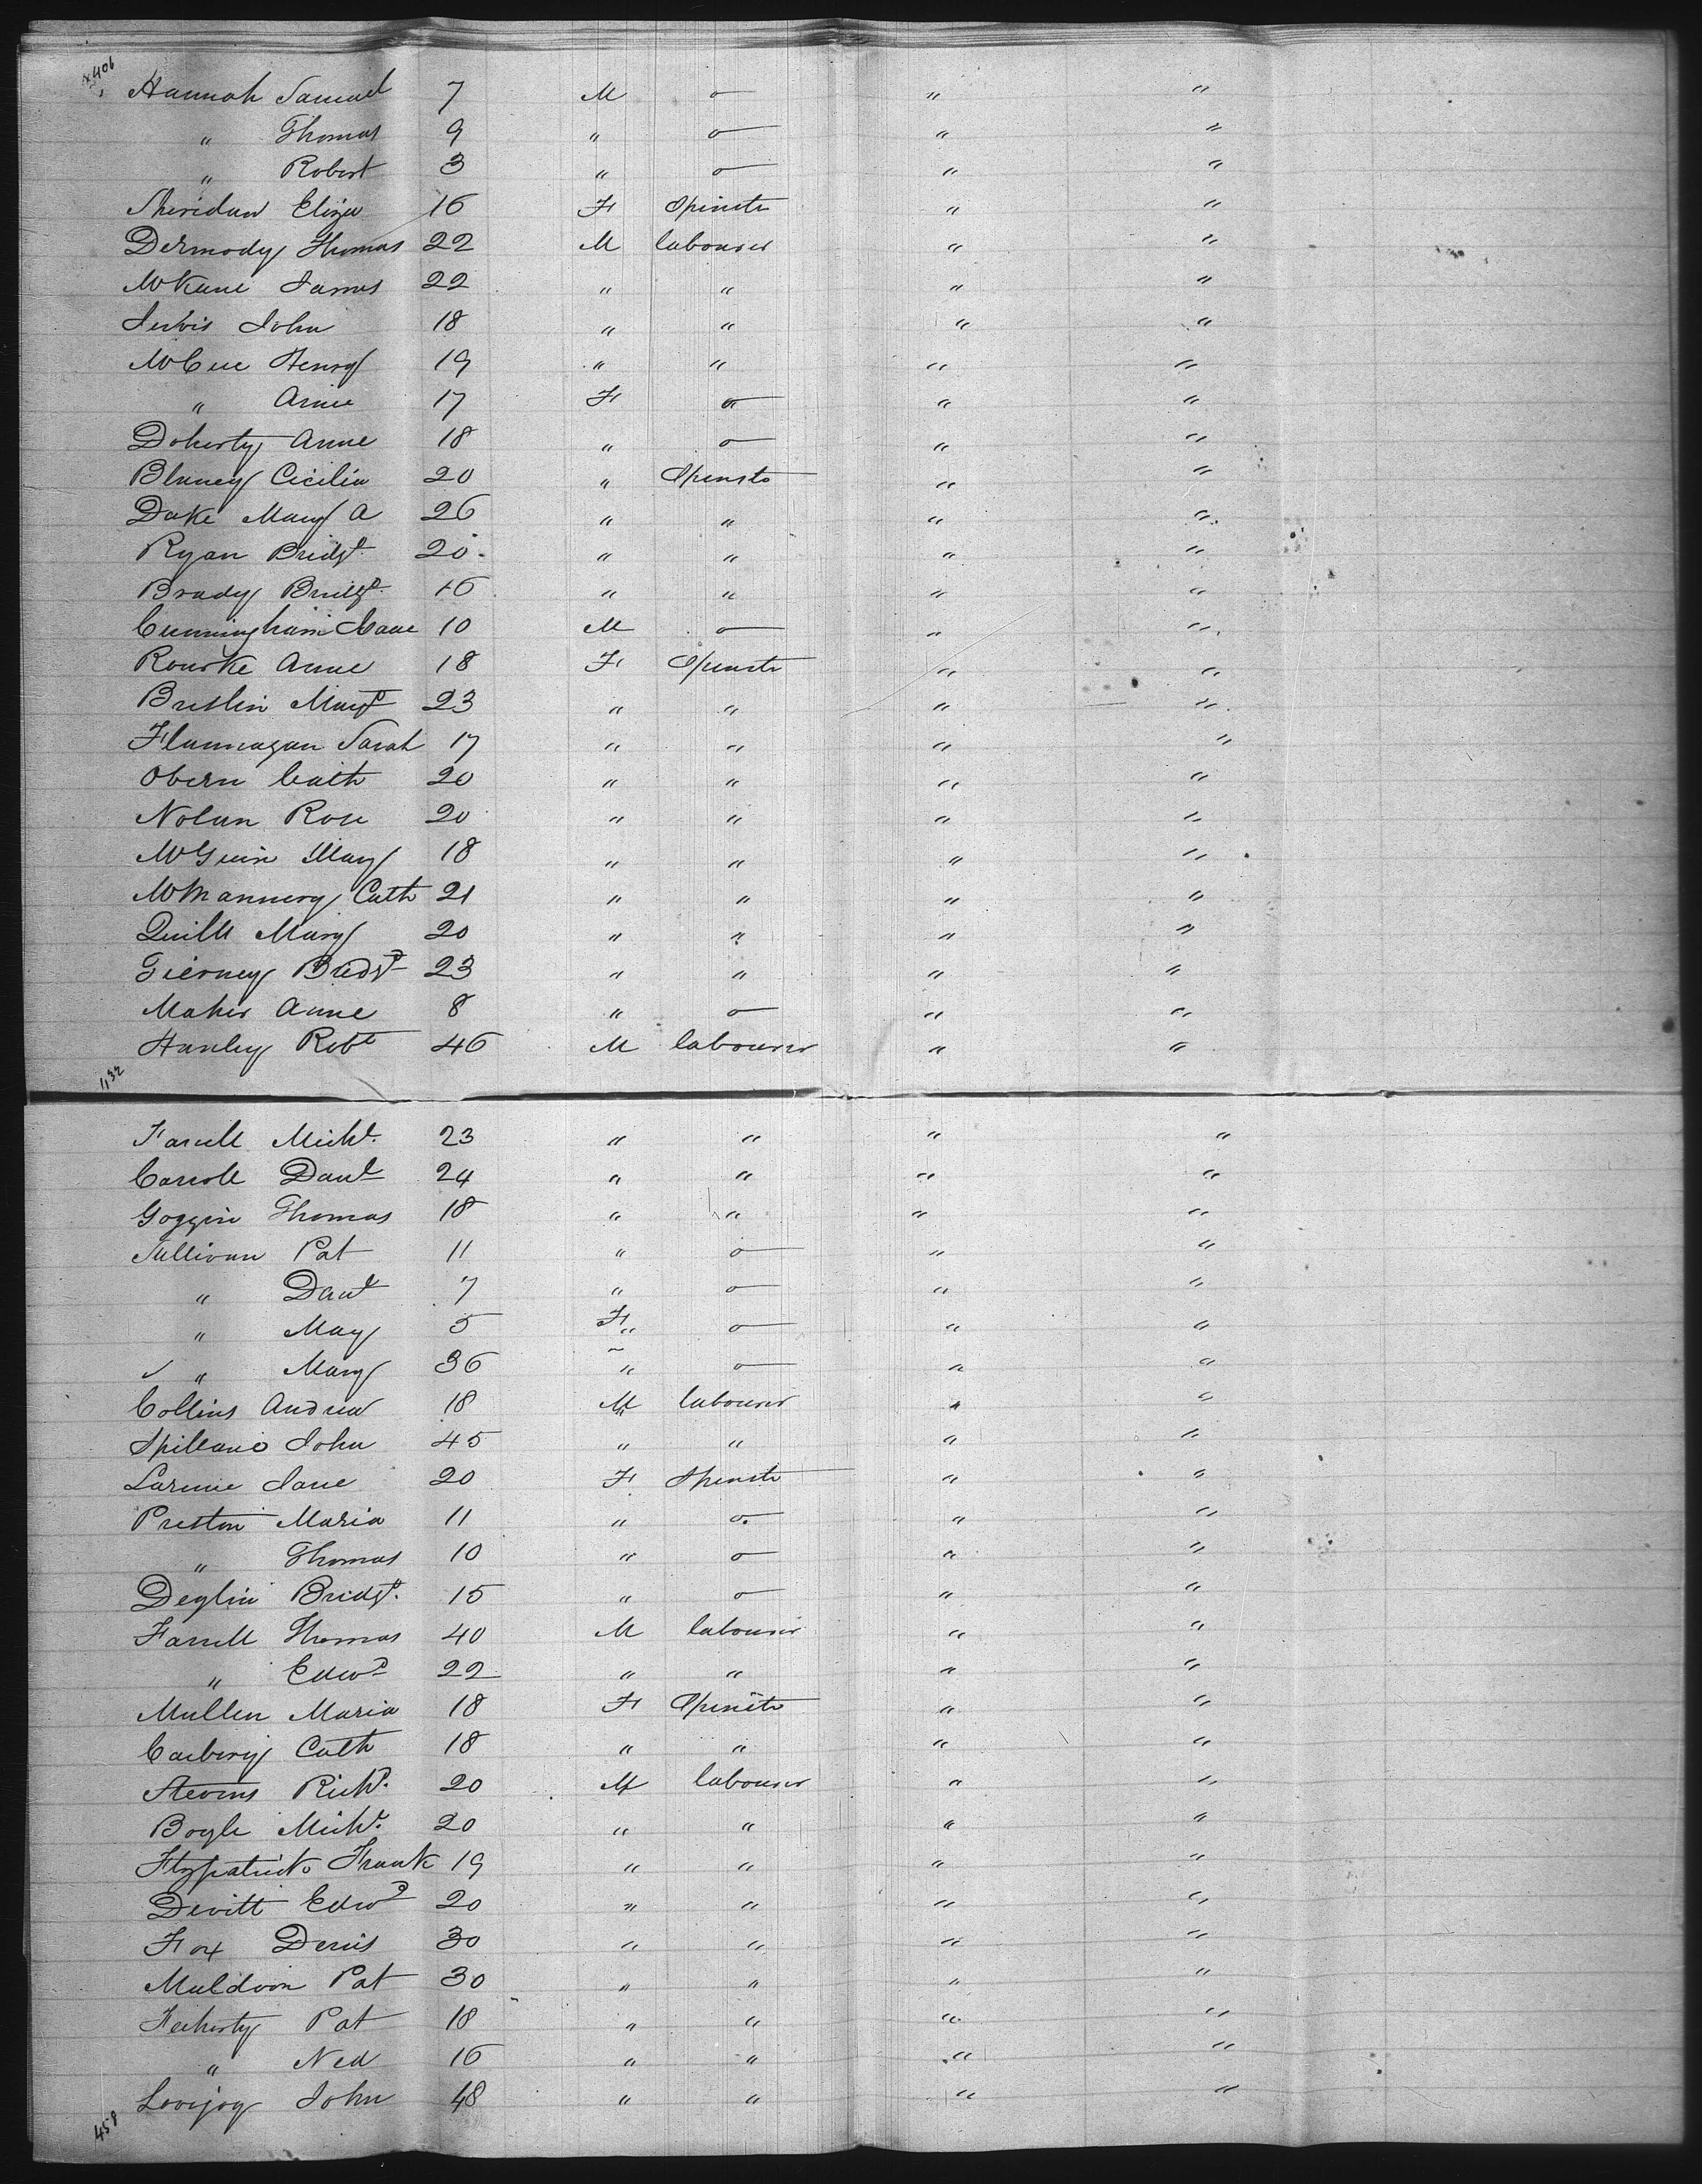 406
Hannah Samuel 7 M o " "
" Thomas 9 " o " "
" Robert 3 " o " "
Sheridan Eliza 16 F Spinstr " "
Dermody Thomas 22 M labourer " "
McKane James 22 " " " "
John 18 " " " "
McCue Henry 19 " " " "
" Anne 17 F o " "
Doherty Anne 18 " o " "
Blaney Cicilia 20 " Spinstr " "
Dake Mary A 26 " " " "
Ryan Bridgt 20 " " " "
Brady Bridgt 16 " " " "
Cunningham Isaac 10 M o " "
Rourke Anne 18 F Spinstr " "
Breslin Margt 23 " " " "
Flannagan Sarah 17 " " " "
Obern Cath 20 " " " "
Nolan Rose 20 " " " "
McGuin Mary 18 " " " "
McMannery Cath 21 " " " "
Quill Mary 20 " " " "
Tierney Bridgt 23 " " " "
Maher Anne 8 " o " "
Hanley Robt 46 M labourer " "
432
Farrell Michl. 23 " " " "
Carroll Danl 24 " " " "
Goggin Thomas 18 " " " "
Sullivan Pat 11 " o " "
" Danl 7 " o " "
" May 5 F " o " "
" Mary 36 " o " "
Collins Andrew 18 M labourer " "
Spillane John 45 " " " "
Larmie Jane 20 F Spinstr " "
Preston Maria 11 " o " "
" Thomas 10 " o " "
Deglin Bridgt. 15 " o " "
Farrell Thomas 40 M labourer " "
" Edwd 22 " " " "
Mullen Maria 18 F Spinstr " "
Carbery Cath 18 " " " "
Stevens Richd. 20 M labourer " "
Boyle Michl. 20 " " " "
Fitzpatrick Frank 19 " " " "
Devitt Edwd 20 " " " "
Fox Denis 30 " " " "
Muldoon Pat 30 " " " "
Feeherty Pat 18 " " " "
" Ned 16 " " " "
Lovejoy John 48 " " " "
458